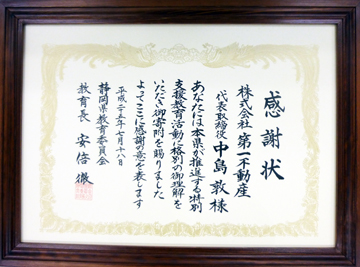 感謝状
株式会社 第一不動産
代表取締役 中島敦様
あなたには本県が推進する特別
支援教育活動に格別の御理解を
いただき御寄附を賜りました
よってここに感謝の意を表します
平成二十五年七月十八日
静岡県教育委員会
教育長 安倍徹